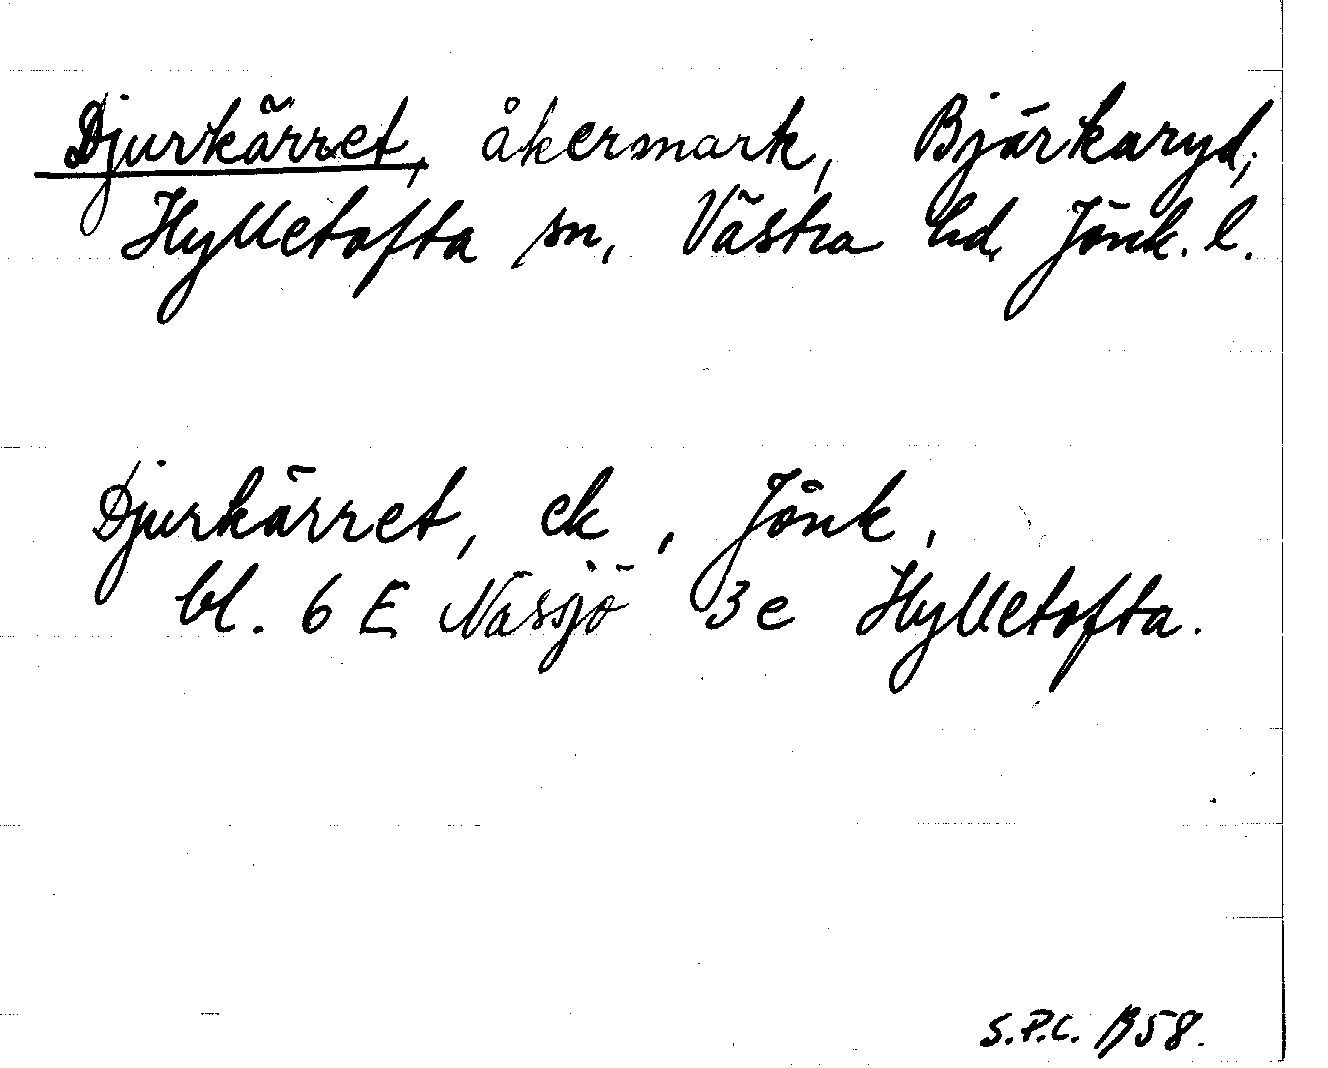 Djurkärret, åkermark, Bjärkaryd,
Hylletofta sn, Västra hd, Jönk. l.
Djurkärret, ek, Jönk.
bl. 6 E Nässjö 3 e Hylletofta.
S.P.C. 1958.